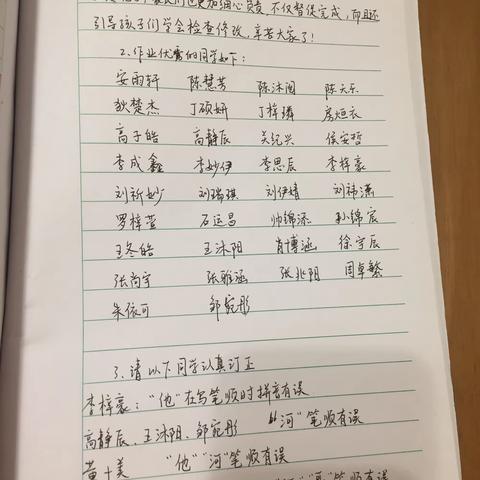 引导孩子们学会检查修改，辛苦大家了！
2.作业优秀的同学如下：
安雨轩 陈慧芳 陈沐阅 陈天乐
狄楚杰 丁硕妍 丁梓璘 房烜衣
高子皓 高静辰 关纪兴 侯安哲
李成鑫 李妙伊 李思辰 李梓豪
刘新妙 刘瑞琪 刘伊婧 刘祎潇
罗梓萱 石运昌 帅锦添 孙锦宸
王冬皓 王沐阳 肖博涵 徐宇辰
张尚宇 张雅涵 张兆阳 周卓繁
朱依可 邹宛彤
3、请以下同学认真订正
李梓豪：“他”在写笔顺时拼音有误
高静辰、王沐阳、邹宛彤 “河”笔顺有误
黄十美 “他”“河”笔顺有误